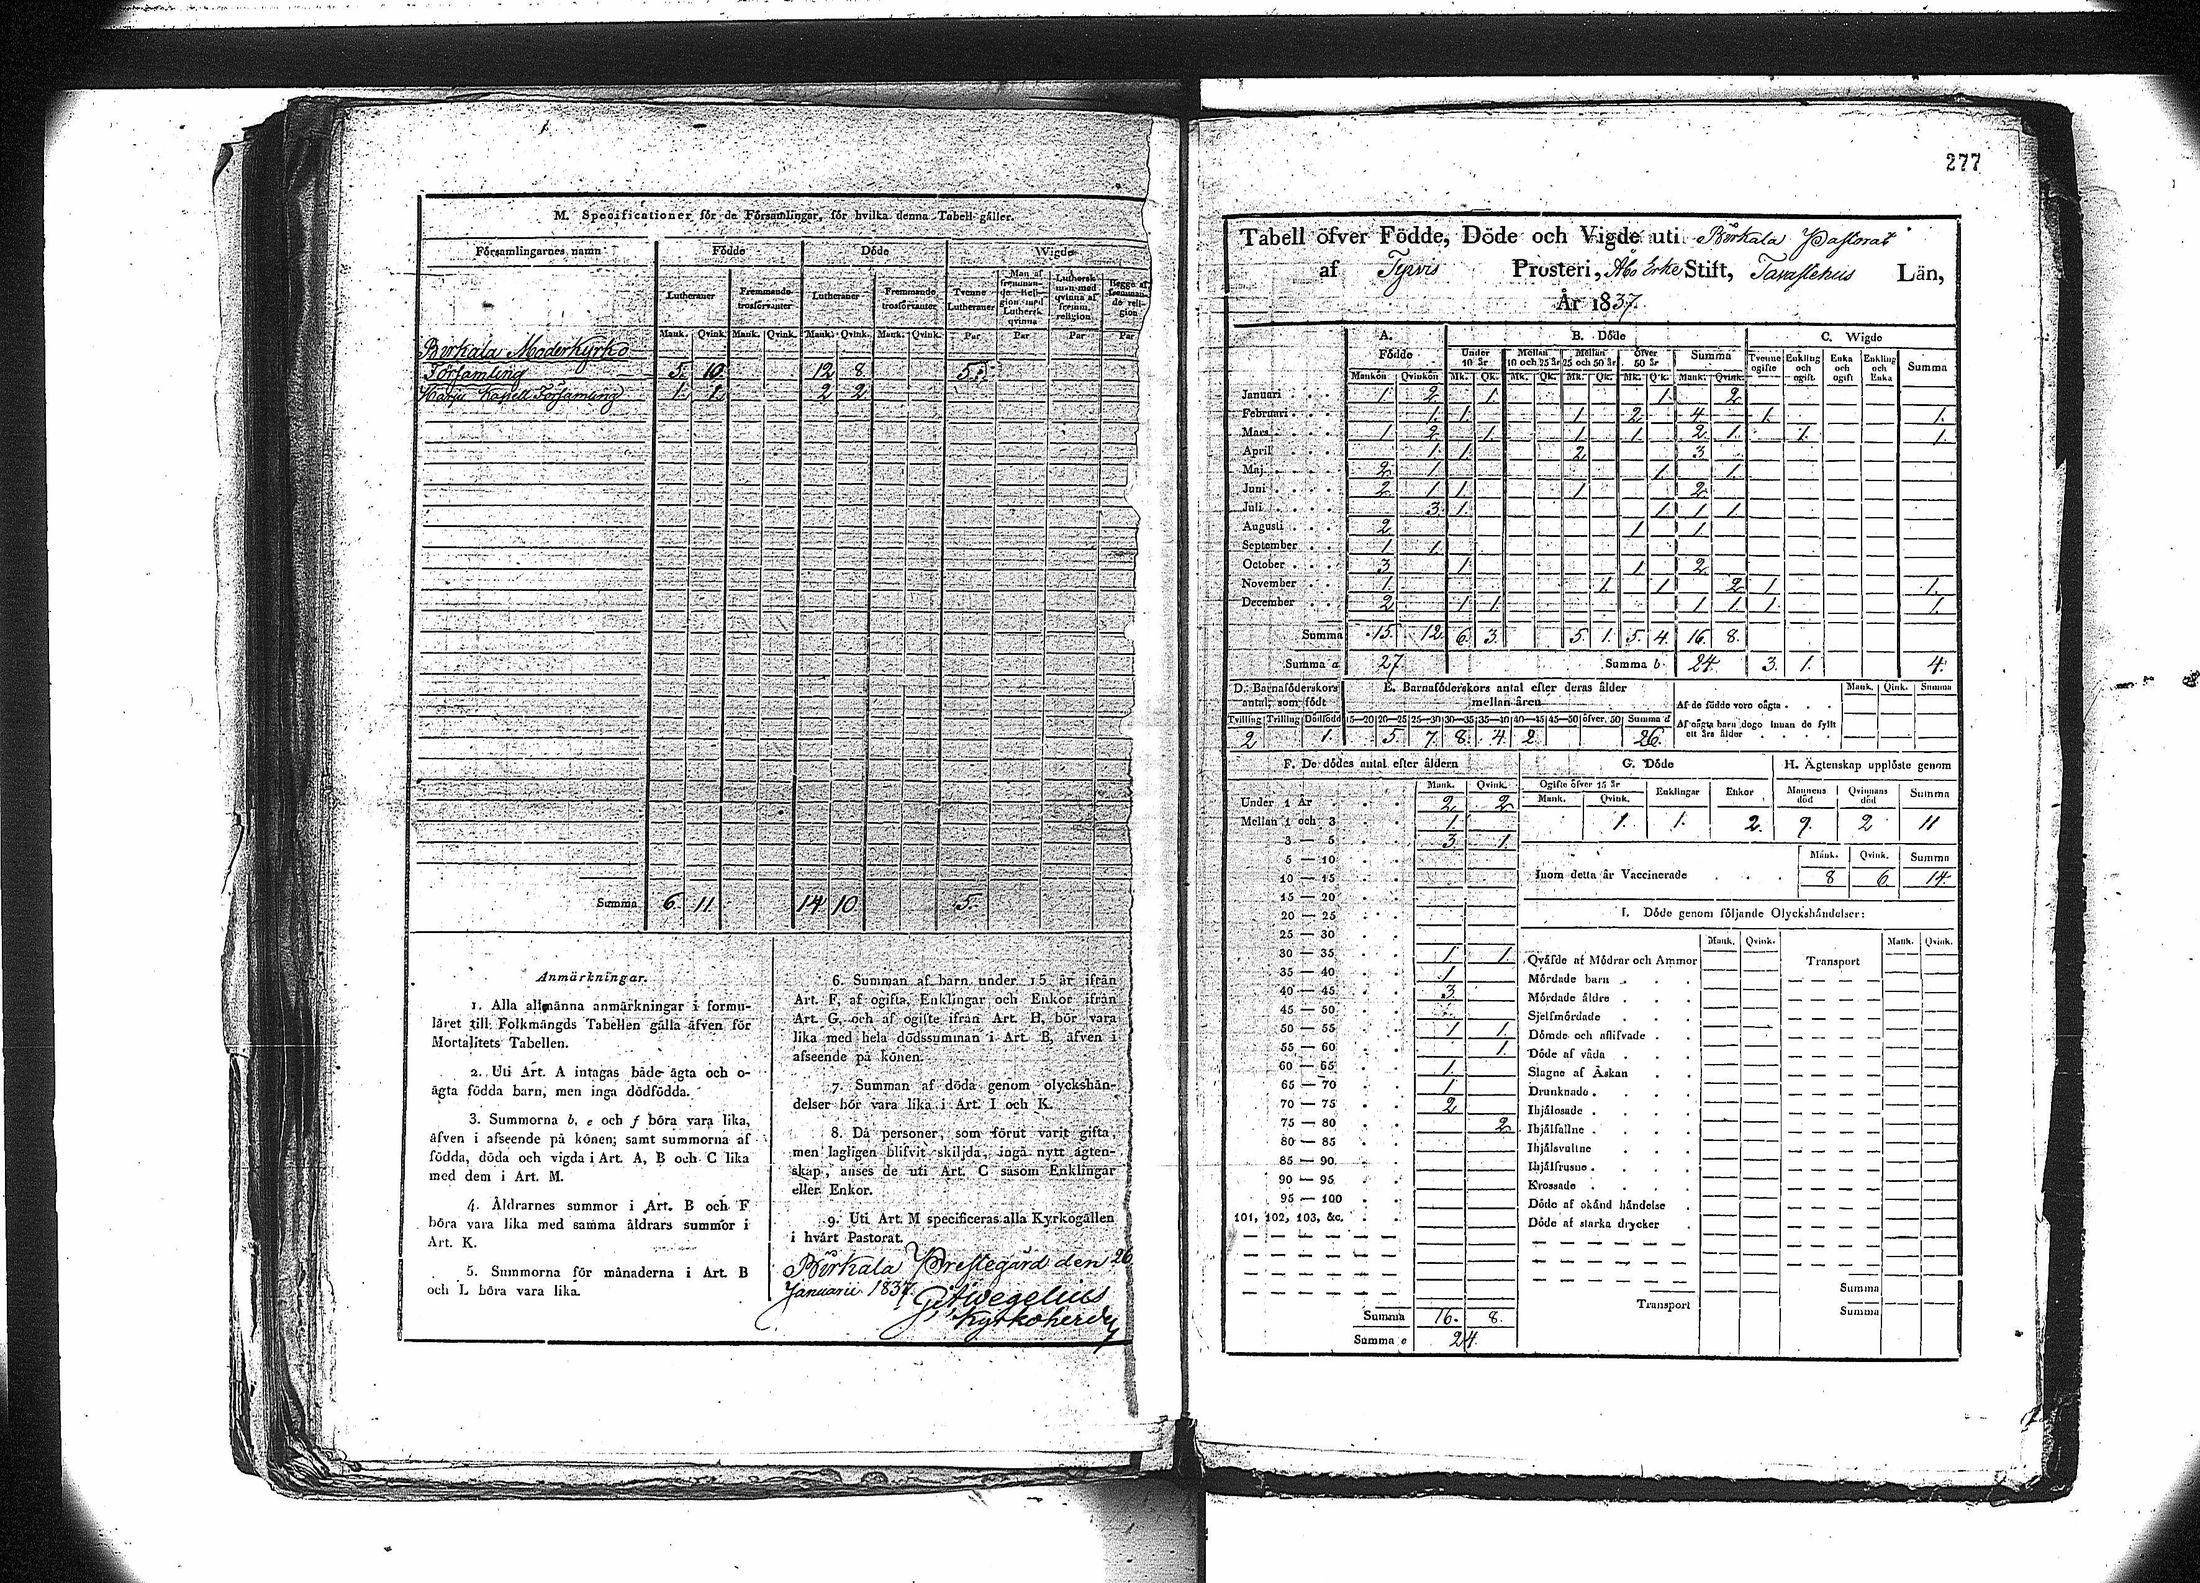 M. Specificationer för de Församlingar, för hvilka denna Tabell gäller.
Församlingarnes namn Födde Döde Wigde
Lutheraner Fremmande trosförvanter Lutheraner Fremmande trosförvanter Tvenne Lutheraner Man af fremmande Religion med Luthersk qvinna Luthersk man med qvinna af fremm. religion Begge af fremmande religion
Mank. Qvink. Mank. Qvink. Mank. Qvink. Mank. Qvink. Par Par Par Par
Birkala Moderkyrko
Församling 5. 10. 12 8. 5.
Harju Kapell Församling 1. 1. 2 2.
Summa 6. 11 14 10 5.
Anmärkningar.
1. Alla allmänna anmärkningar i formu-
läret till Folkmängds Tabellen gälla äfven för
Mortalitets Tabellen.
2. Uti Art. A intagas både ägta och o-
ägta födda barn, men inga dödfödda.
3. Summorna b, e och f böra vara lika,
äfven i afseende på könen; samt summorna af
födda, döda och vigda i Art. A, B och C lika
med dem i Art. M.
4. Åldrarnes summor i Art. B och F
böra vara lika med samma åldrars summor i
Art. K.
5. Summorna för månaderna i Art. B
och L böra vara lika.
6. Summan af barn under 15 år ifrån
Art. F, af ogifta, Enklingar och Enkor ifrån
Art. G, och af ogifte ifrån Art. H, bör vara
lika med hela dödssumman i Art. B, äfven i
afseende på könen.
7. Summan af döda genom olyckshän-
delser bör vara lika i Art. I och K.
8. Då personer, som förut varit gifta,
men lagligen blifvit skiljda, ingå nytt ägten-
skap, anses de uti Art. C såsom Enklingar
eller Enkor.
9. Uti Art. M specificeras alla Kyrkogällen
i hvart Pastorat.
Birkala Prestegård den 26
Januarii 1837.
Kyrkoherde
277
Tabell öfver Födde, Döde och Vigde uti Birkala Pastorat
af Tyrvis Prosteri, Åbo Erke Stift, Tavastehus Län,
År 1837.
A. Födde B. Döde C. Wigde
Under 10 år Mellan 10 och 25 år Mellan 25 och 50 år öfver 50 år Summa Tvenne ogifte Enkling och ogift Enka och ogift Enkling och Enka Summa
Mankön Qvinkön Mk. Qk. Mk. Qk. Mk. Qk. Mk. Qk. Mank. Qvink.
Januari 1. 2. 1. 1. 2.
Februari 1. 1. 1. 2. 4. 1. 1.
Mars 1. 2. 1. 1. 1. 2. 1. 1. 1.
April 1. 1. 2. 3.
Maj 2. 1. 1. 1.
Juni 2. 1. 1. 1. 2.
Juli 3. 1. 1. 1. 1.
Augusti 2. 1. 1.
September 1. 1.
October 3. 1. 1. 2.
November 1. 1. 1. 2. 1. 1.
December 2. 1. 1. 1. 1. 1. 1.
Summa 15. 12. 6. 3. 5. 1. 5. 4. 16. 8.
Summa a 27. Summa b 24. 3. 1. 4.
D. Barnaföderskors antal, som födt E. Barnaföderskors antal efter deras ålder mellan åren Mank. Qink. Summa
Tvilling Trilling Dödfödd 15—20 20—25 25—30 30—35 35—40 40—45 45—50 öfver 50 Summa d
2 1. 5. 7. 8. 4. 2 26.
Af de födde voro oägta
Af oägta barn dogo innan de fyllt
ett års ålder
F. De dödes antal efter åldern
Mank. Qvink.
Under 1 År 2. 2.
Mellan 1 och 3 1.
3 — 5 3. 1.
5 — 10
10 — 15
15 — 20
20 — 25
25 — 30
30 — 35 1. 1.
35 — 40 1.
40 — 45 3.
45 — 50
50 — 55 1. 1.
55 — 60 1.
60 — 65 1.
65 — 70 1.
70 — 75 2.
75 — 80 2.
80 — 85
85 — 90
90 — 95
95 — 100
101, 102, 103, &c.
Summa 16. 8.
Summa e 24.
G. Döde H. Ägtenskap upplöste genom
Ogifte öfver 15 år Enklingar Enkor Mannens död Qvinnans död Summa
Mank. Qvink.
1. 1. 2. 9. 2 11
Mank. Qvink. Summa
Inom detta år Vaccinerade 8 6 14.
I. Döde genom följande Olyckshändelser:
Mank. Qvink. Mank. Qvink.
Qväfde af Mödrar och Ammor Transport
Mördade barn
Mördade äldre
Sjelfmördade
Dömde och aflifvade
Döde af våda
Slagne af Åskan
Drunknade
Ihjälosade
Ihjälfallne
Ihjälsvultne
Ihjälfrusne
Krossade
Döde af okänd händelse
Döde af starka drycker
Summa
Transport Summa